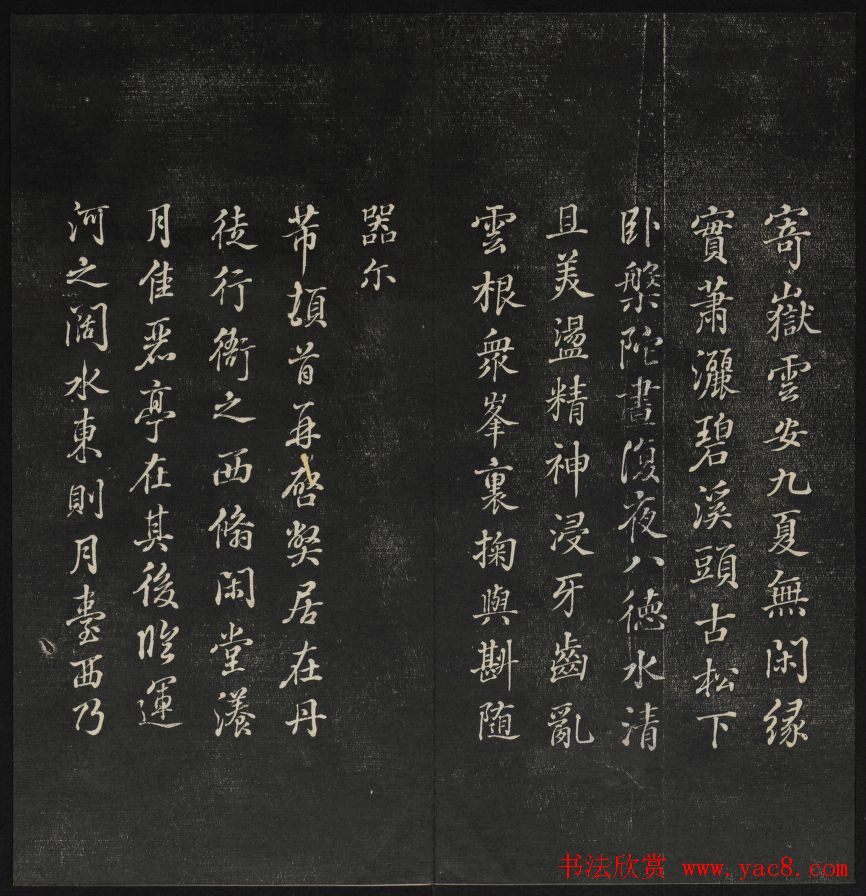 寄嶽雲安九夏無閑緣
實蕭灑碧溪頭古松下
卧槃陀晝復夜八德水清
且美盪精神浸牙齒亂
雲根衆峯裏掬與斟随
器尔
芾頓首再啓弊居在丹
徒行衙之西脩閑堂瀁
月佳麗亭在其後臨運
河之闊水東則月臺西乃
书法欣赏 www.yac8.com